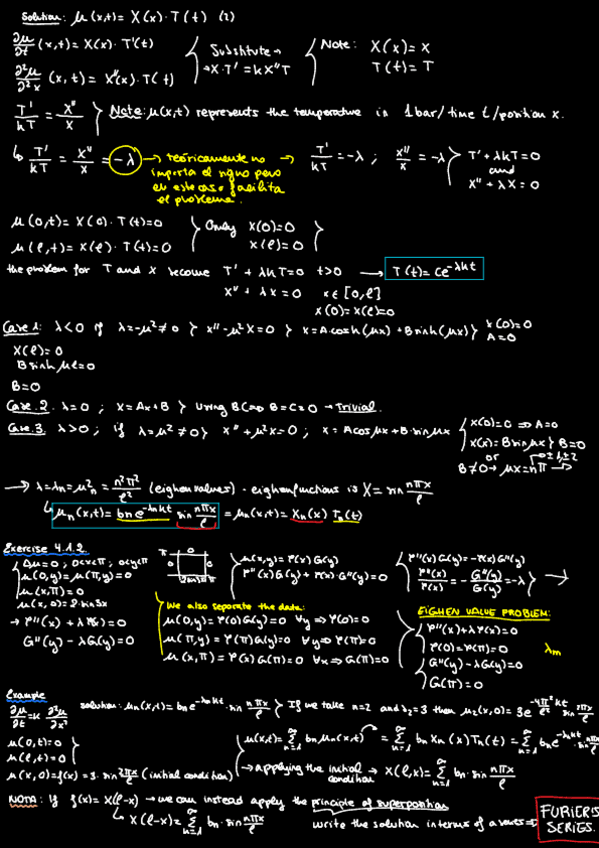 Solution: μ(x,t) = X(x) · T(t) (2)
∂μ/∂t (x,t) = X(x) · T'(t)
∂²μ/∂²x (x,t) = X''(x) · T(t)
Substitute →
→ X · T' = k X'' T
Note: X(x) = X
T(t) = T
T'/kT = X''/X } Note: μ(x,t) represents the temperature in 1 bar / time t / position x.
↳ T'/kT = X''/X = -λ → teóricamente no importa el signo pero en este caso facilita el problema. → T'/kT = -λ ; X''/X = -λ } T' + λkT = 0
and
X'' + λX = 0
μ(0,t) = X(0) · T(t) = 0
μ(ℓ,t) = X(ℓ) · T(t) = 0
Only X(0) = 0
X(ℓ) = 0
the problem for T and X become T' + λkT = 0 t>0 → T(t) = Ce^-λkt
X'' + λX = 0 x ∈ [0,ℓ]
X(0) = X(ℓ) = 0
Case 1: λ<0 if λ = -μ² ≠ 0 } X'' - μ²X = 0 } X = A cosh(μx) + B sinh(μx) } X(0) = 0
A = 0
X(ℓ) = 0
B sinh μℓ = 0
B = 0
Case 2. λ = 0 ; X = Ax + B } Using BC ⇒ B = C = 0 → Trivial.
Case 3. λ>0 ; if λ = μ² ≠ 0 } X'' + μ²X = 0 ; X = A cos μx + B sin μx
X(0) = 0 ⇒ A = 0
X(x) = B sin μx } B = 0
or
B ≠ 0 → μx = nπ →
±1, ±2
→ λ = λn = μ²n = n²π²/ℓ² (eighen values) - eighenfunctions is X = sin nπx/ℓ
↳ μn(x,t) = bn e^-λnkt sin nπx/ℓ = μn(x,t) = Xn(x) Tn(t)
Exercise 4.1.2.
Δμ = 0 ; 0<x<π ; 0<y<π
μ(0,y) = μ(π,y) = 0
μ(x,π) = 0
μ(x,0) = 2 · sin3x
→ φ''(x) + λφ(x) = 0
G''(y) - λG(y) = 0
π
0
0
0
2sin3x
π
μ(x,y) = φ(x) G(y)
φ''(x) G(y) + φ(x) · G''(y) = 0
φ''(x) G(y) = -φ(x) G''(y)
φ''(x)/φ(x) = - G''(y)/G(y) = -λ →
We also separate the data:
μ(0,y) = φ(0) G(y) = 0 ∀y ⇒ φ(0) = 0
μ(π,y) = φ(π) G(y) = 0 ∀y ⇒ φ(π) = 0
μ(x,π) = φ(x) G(π) = 0 ∀x ⇒ G(π) = 0
EIGHEN VALUE PROBLEM:
φ''(x) + λφ(x) = 0
φ(0) = φ(π) = 0
G''(y) - λG(y) = 0
G(π) = 0
λm
Example
∂μ/∂t = k ∂²μ/∂x²
solution: μn(x,t) = bn e^-λnkt · sin nπx/ℓ } If we take n=2 and b2=3 then μ2(x,0) = 3e^-4π²/ℓ² kt sin 2πx/ℓ
μ(0,t) = 0
μ(ℓ,t) = 0
μ(x,0) = f(x) = 3 · sin 2πx/ℓ (initial condition)
μ(x,t) = ∞∑n=1 bn μn(x,t) = ∞∑n=1 bn Xn(x) Tn(t) = ∞∑n=1 bn e^-λnkt · sin nπx/ℓ
→ applying the initial condition → X(ℓ,x) = ∞∑n=1 bn · sin nπx/ℓ
NOTA: If f(x) = X(ℓ-x) → we can instead apply the principle of superposition
↳ X(ℓ-x) = ∞∑n=1 bn · sin nπx/ℓ write the solution in terms of a series ⇒
FURIERIS SERIES.